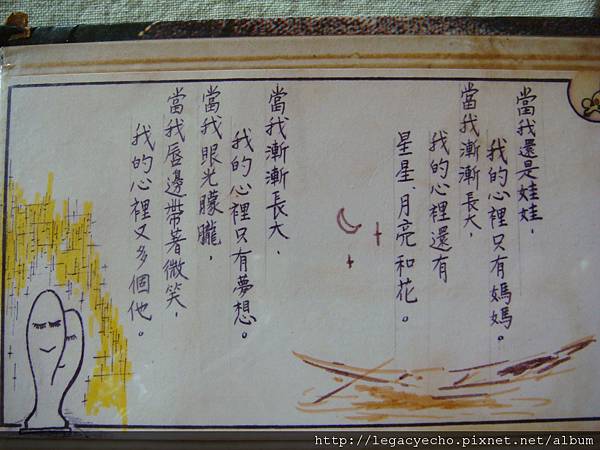 當我還是娃娃，
我的心裡只有媽媽。
當我漸漸長大，
我的心裡還有
星星、月亮和花。
當我漸漸長大，
我的心裡只有夢想。
當我眼光朦朧，
當我唇邊帶著微笑，
我的心裡又多個他。
http://legacyecho.pixnet.net/album